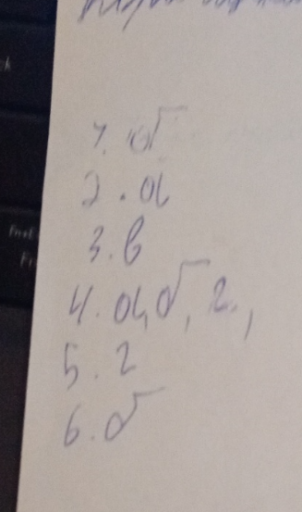 1. б
2. а
3. в
4. а, б, г.,
5. г
6. б